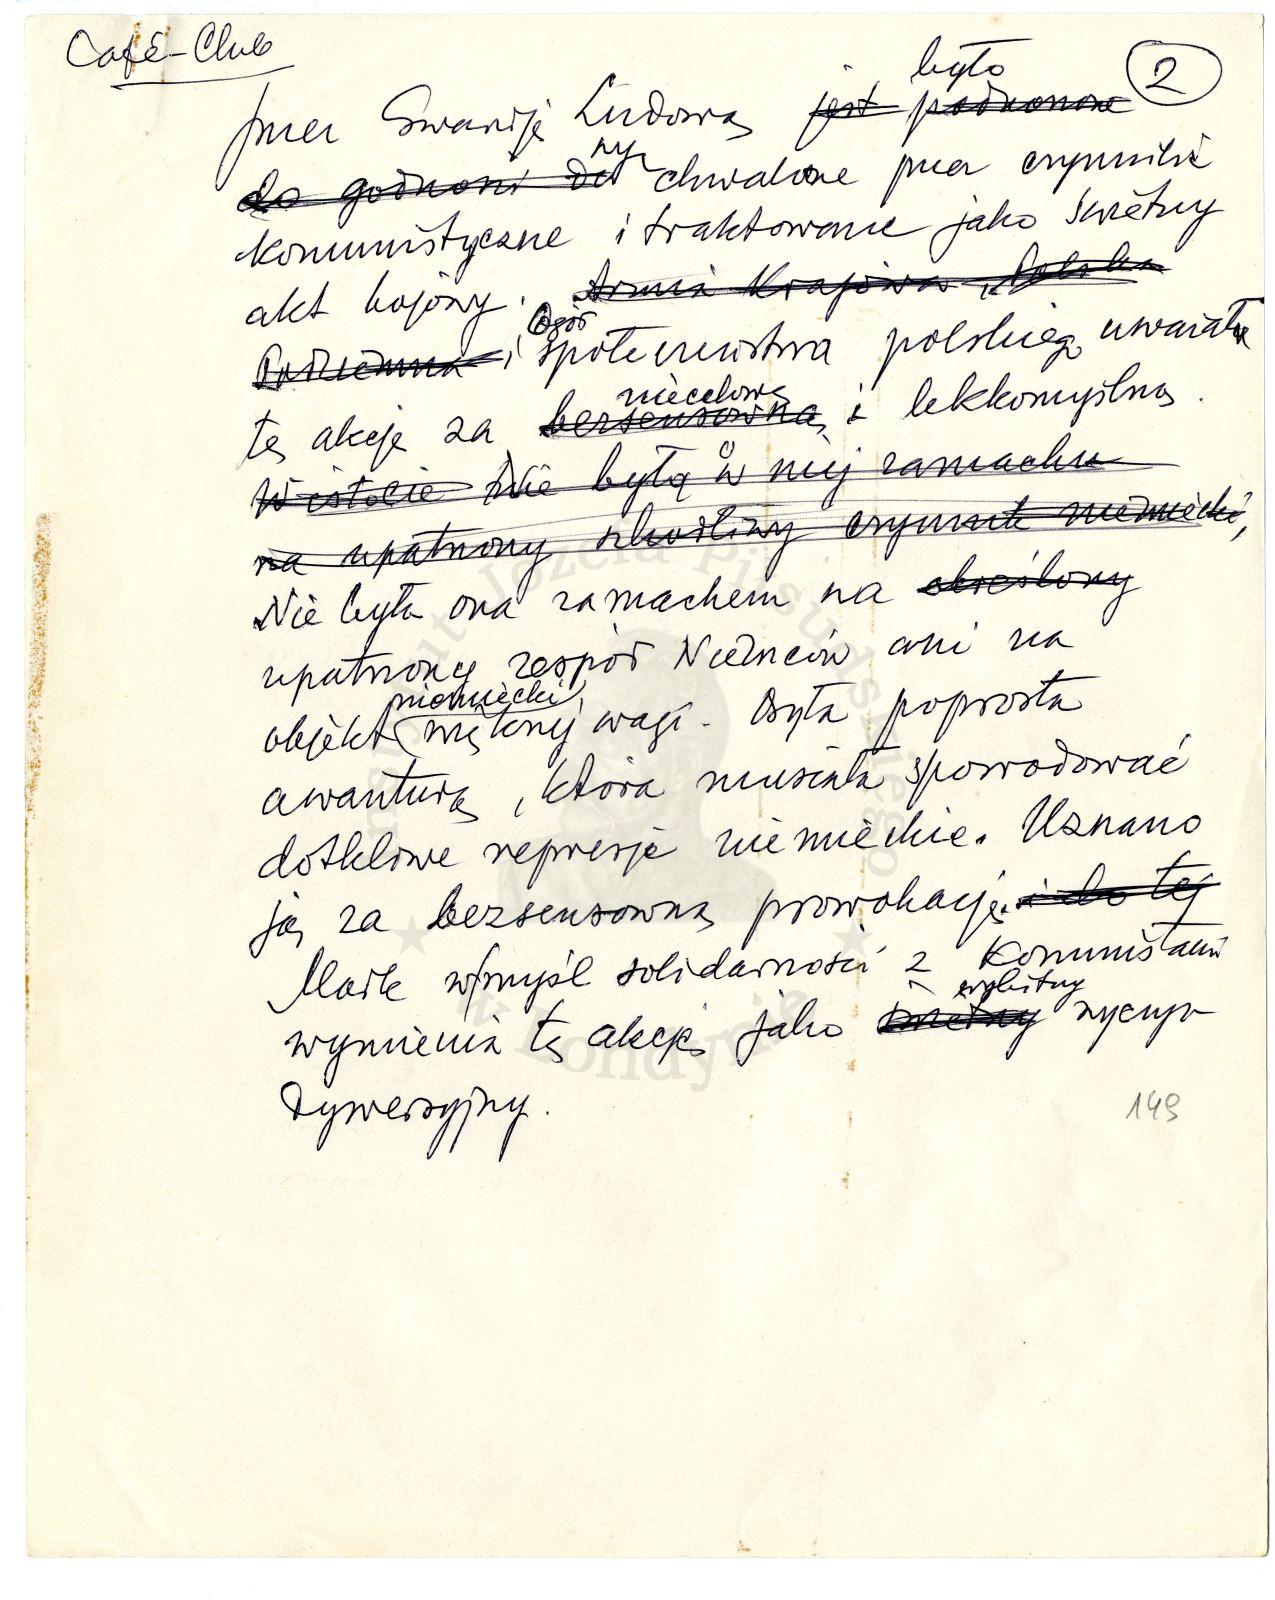 Café-Club
2
było
przez Gwardję Ludową jest podnoszone
do godności wychwalane przez czynniki
komunistyczne i traktowane jako świetny
akt bojowy. Armia Krajowa, Polska
Podziemna i Ogół społeczeństwa polskiego uważała
niecelową
tę akcję za bezsensowną i lekkomyślną.
W istocie Nie było w niej zamachu
na upatrzony szkodliwy czynnik niemiecki,
Nie była ona zamachem na określony
upatrzony zespół Niemców ani na
niemiecki
objekt większej wagi. Była poprostu
awanturą, która musiała spowodować
dotkliwe represje niemieckie. Uznano
ją za bezsensowną prowokację. i do tej
Mark w myśl solidarności z komunistami
wybitny
wymienia tę akcję jako świetny wyczyn
dywersyjny.
149
Instytut Józefa Piłsudskiego
w Londynie